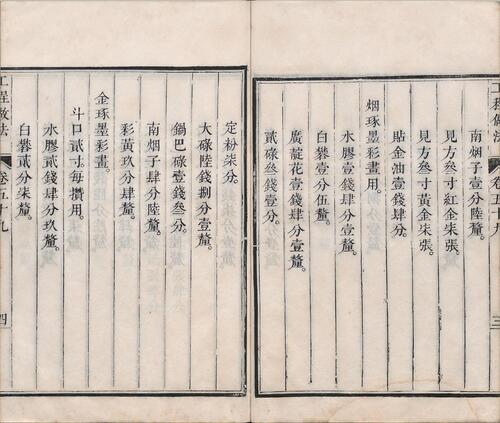 工程做法
卷五十九
三
南烟子壹分陸釐。
見方叁寸紅金柒張。
見方叁寸黃金柒張。
貼金油壹錢肆分。
烟琢墨彩畫用。
水膠壹錢肆分壹釐。
白礬壹分伍釐。
廣靛花壹錢肆分壹釐。
貳碌叁錢壹分。
定粉柒分。
大碌陸錢捌分壹釐。
鍋巴碌壹錢叁分。
南烟子肆分陸釐。
彩黃玖分肆釐。
金琢墨彩畫。
斗口貳寸每攢用。
水膠貳錢肆分玖釐。
白礬貳分柒釐。
工程做法
卷五十九
四